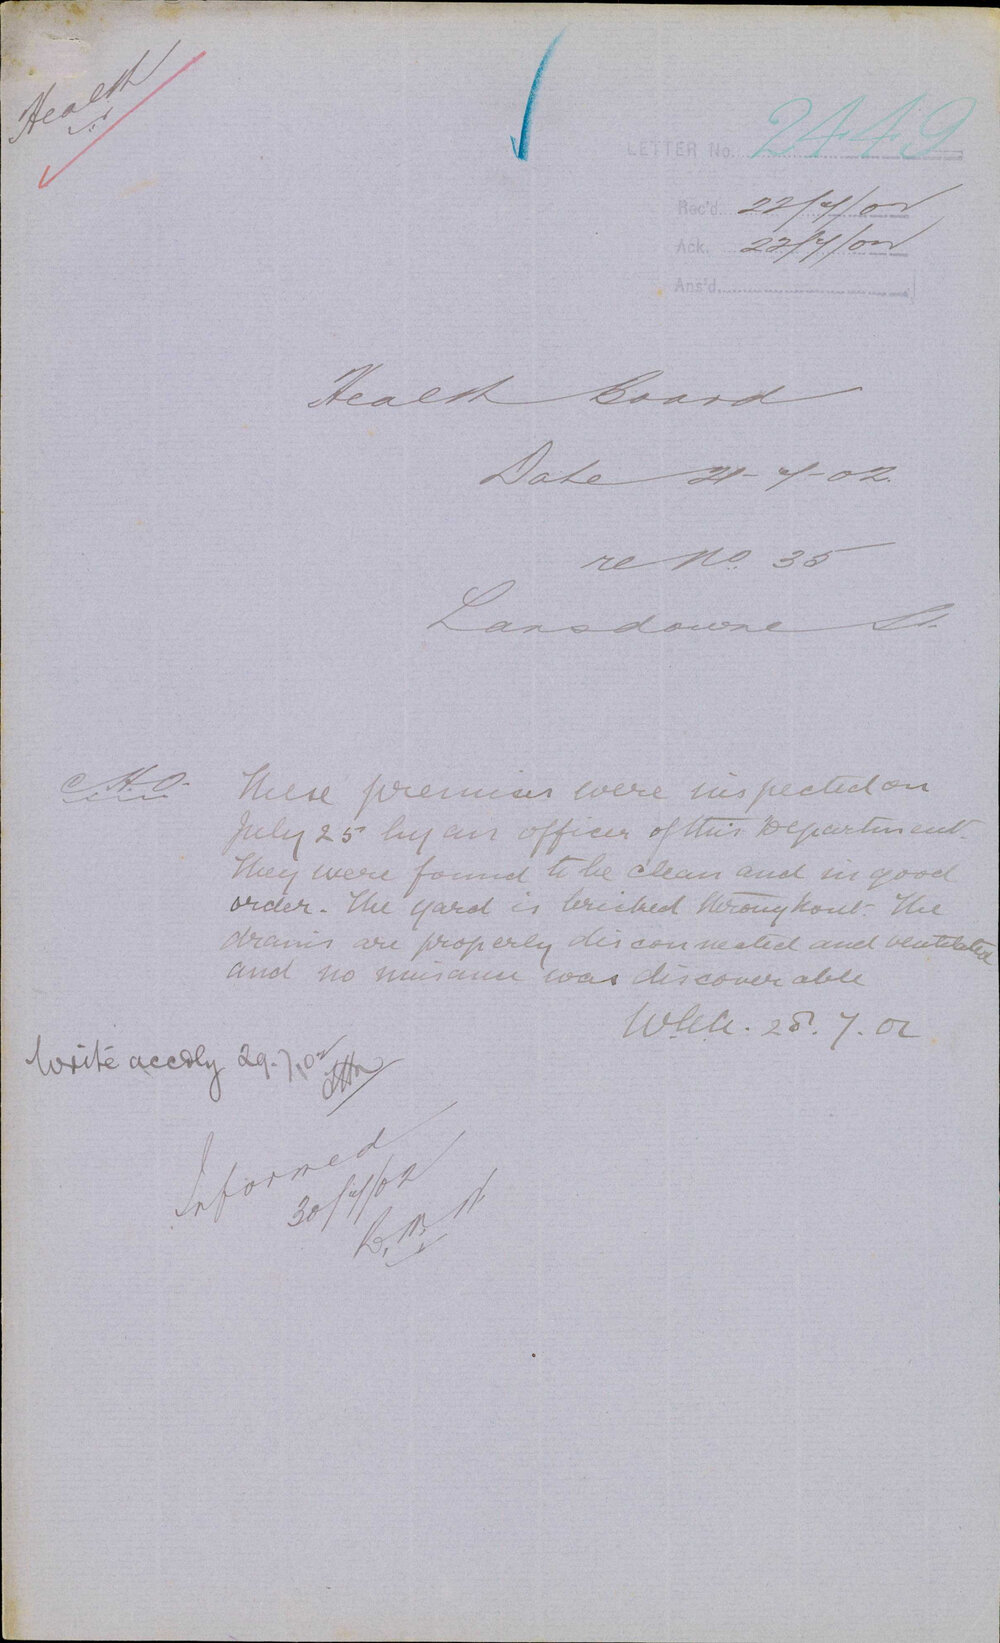 Health
LETTER No. 2449
Rec'd. 22/7/02
Ack. 22/7/02
Ans'd.
Health Board
Date 21-7-02.
re No. 35
Lansdowne St.
C.H.O.
These premises were inspected on
July 25 by an officer of this Department.
They were found to be clean and in good
order. The yard is bricked throughout. The
drains are properly disconnected and ventilated
and no nuisance was discoverable
28.7.02
Write accdly 29.7.02
Informed
30/7/02